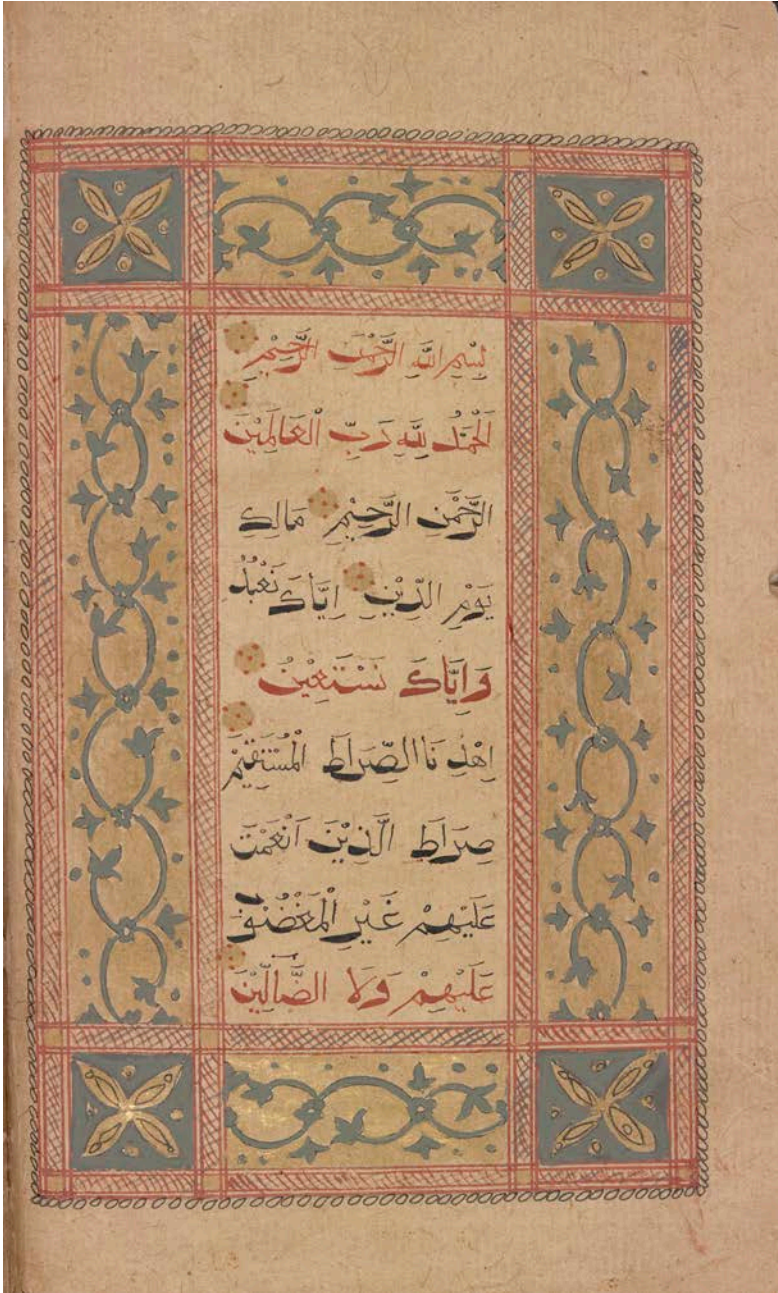 بِسْمِ اللهِ الرَّحْمٰنِ الرَّحِيْمِ
اَلْحَمْدُ لِلّٰهِ رَبِّ الْعَالَمِيْنَ
الرَّحْمٰنِ الرَّحِيْمِ مَالِكِ
يَوْمِ الدِّيْنِ اِيَّاكَ نَعْبُدُ
وَاِيَّاكَ نَسْتَعِيْنُ
اِهْدِنَا الصِّرَاطَ الْمُسْتَقِيْمَ
صِرَاطَ الَّذِيْنَ اَنْعَمْتَ
عَلَيْهِمْ غَيْرِ الْمَغْضُوْبِ
عَلَيْهِمْ وَلَا الضَّآلِّيْنَ